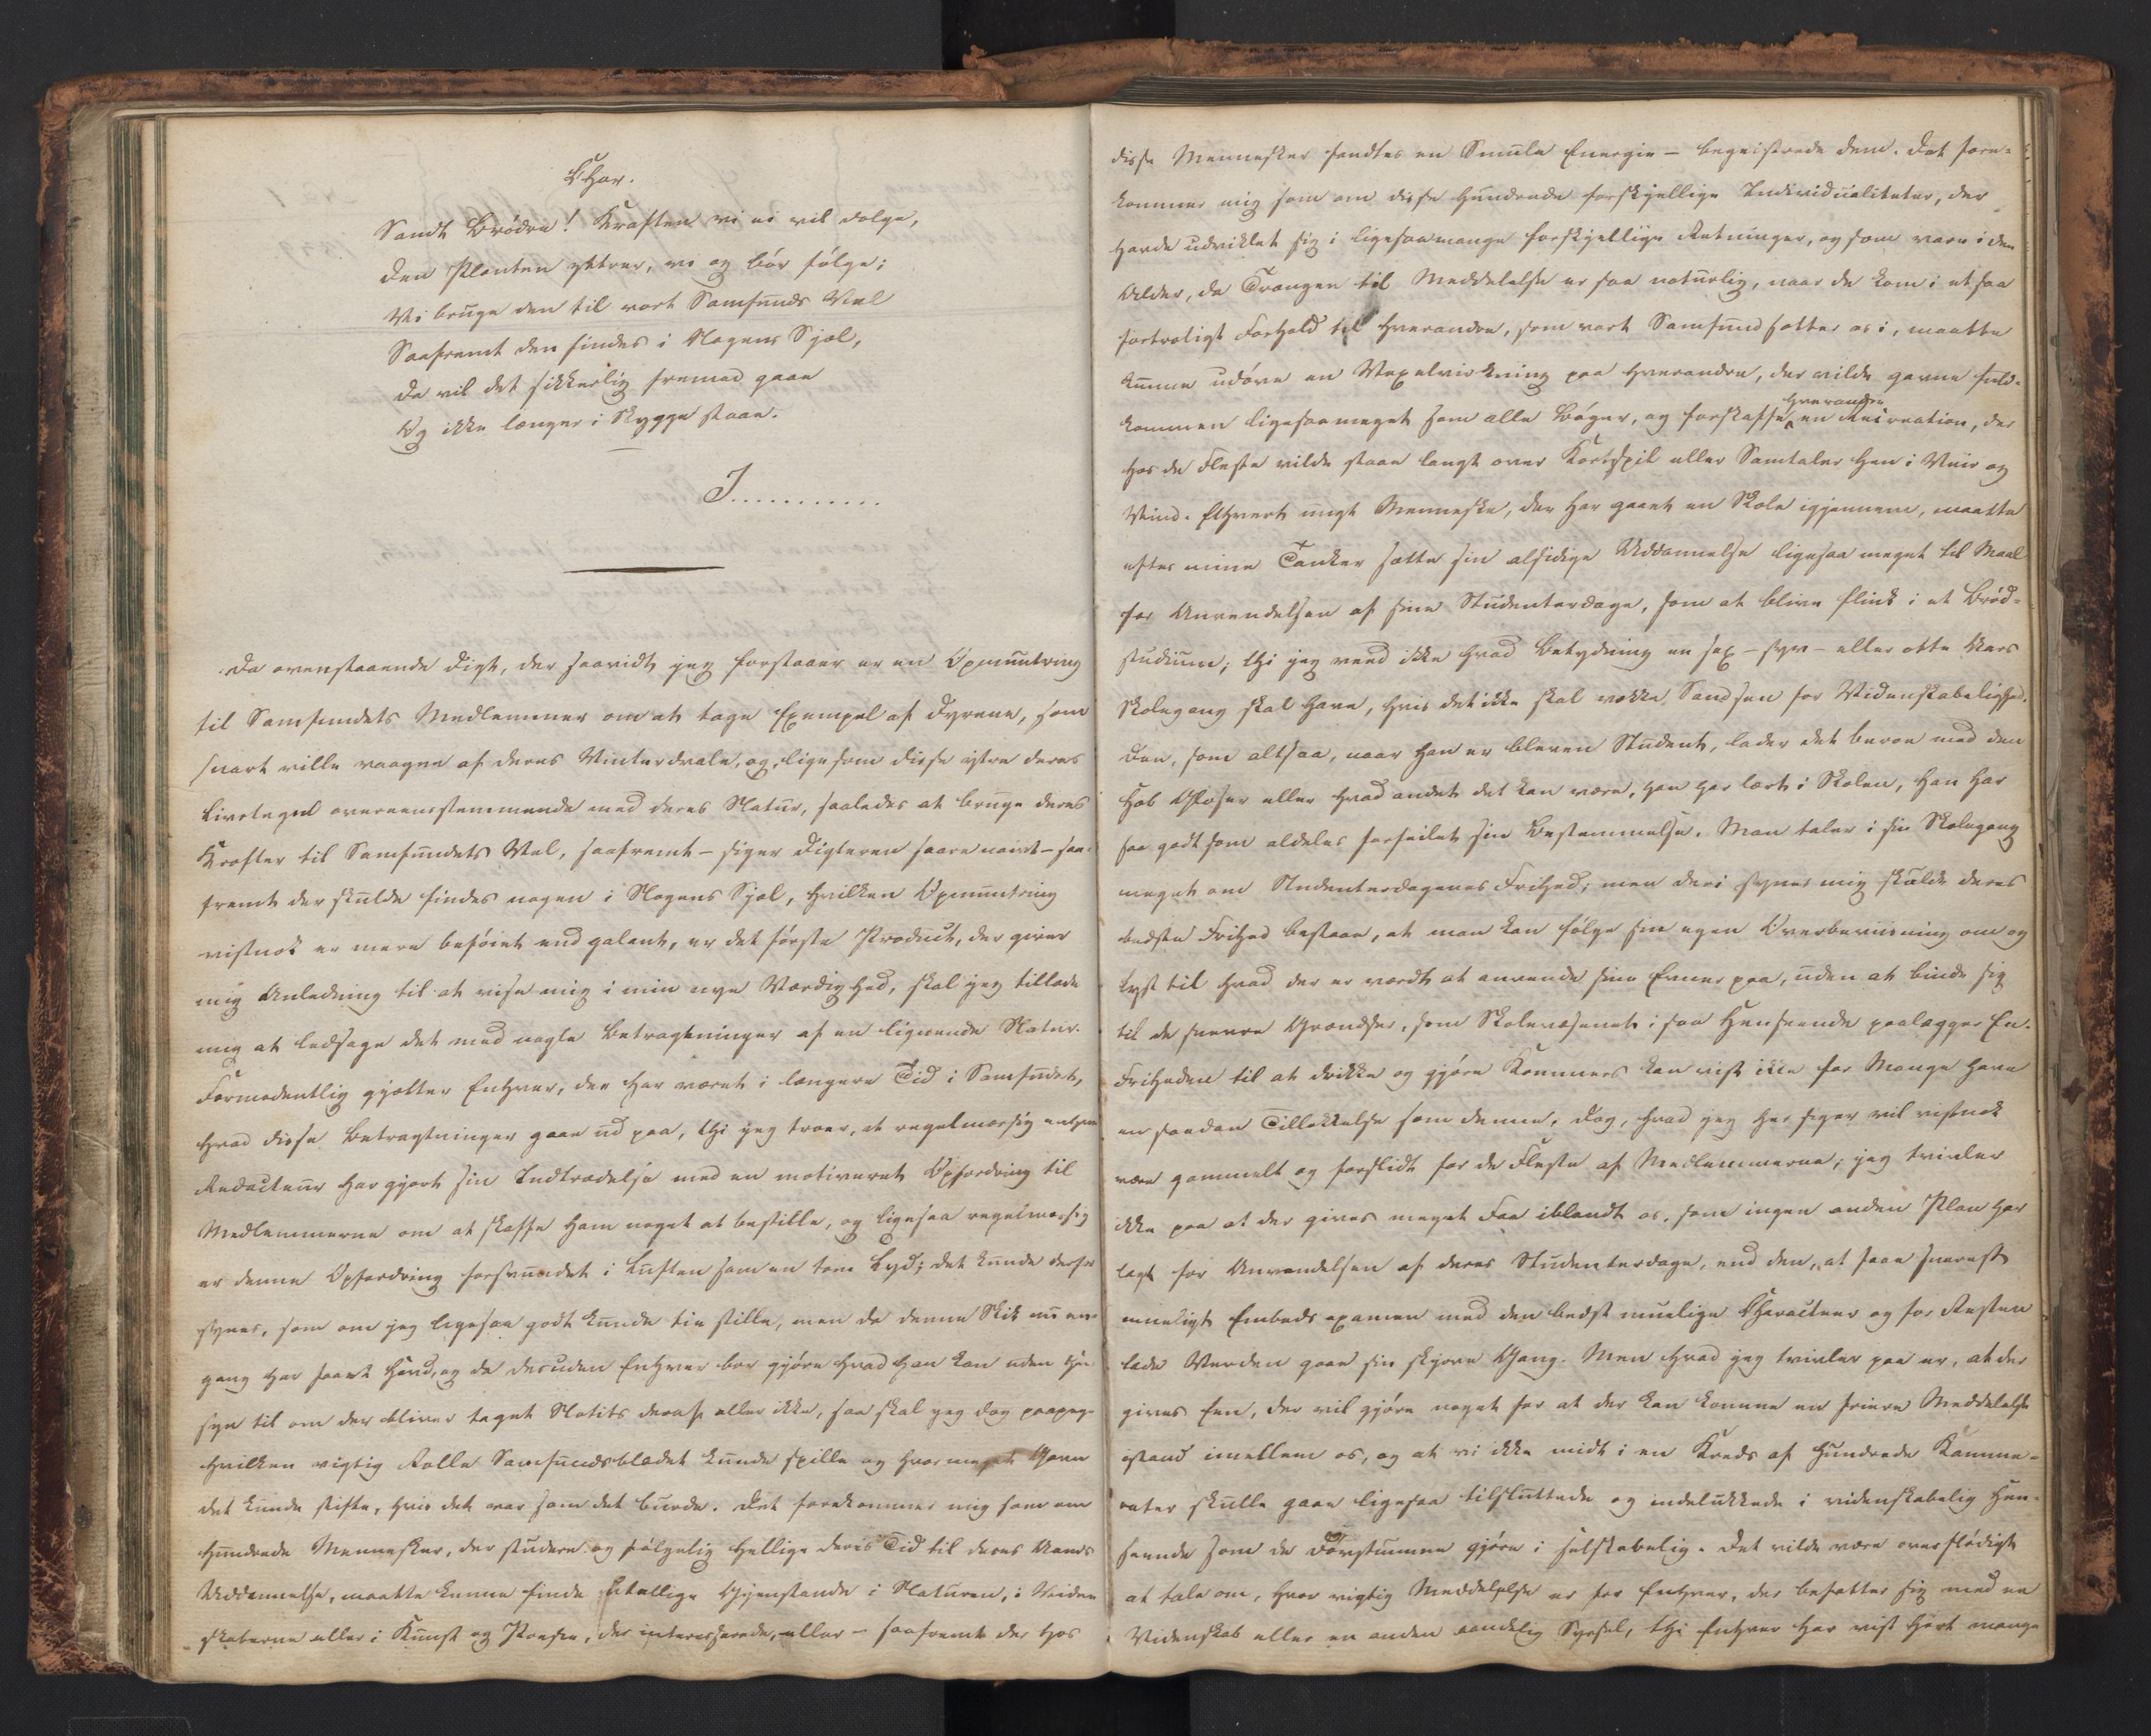 Chor.
Sandt Brødre! Kraften vi ei vil dølge,
den Planten yttrer, vi og bør følge;
Vi bruge den til vort Samfunds Vel
Saafremt den findes i Nogens Sjæl,
da vil det sikkerlig fremad gaae
Og ikke længer i Skygge staae.
J............
Da ovenstaaende Digt, der saavidt jeg forstaaer er en Opmuntring
til Samfundets Medlemmer om at tage Exempel af Dyrene, som
snart ville vaagne af deres Vinterdvale, og, ligesom disse yttre deres
Livstegn overeensstemmende med deres Natur, saaledes at bruge deres
Kræfter til Samfundets Vel, saafremt – siger Digteren saare naivt – saa-
fremt der skulde findes nogen i Nogens Sjæl, hvilken Opmuntring
vistnok er mere beføiet end galant, er det første Product, der giver
mig Anledning til at vise mig i min nye Værdighed, skal jeg tillade
mig at ledsage det med nogle Betragtninger af en lignende Natur.
Formodentlig gjætter Enhver, der har været i længere Tid i Samfundet,
hvad disse Betragtninger gaae ud paa, thi jeg troer, at regelmæssig enhver
Redacteur har gjort sin Indtrædelse med en motiveret Opfordring til
Medlemmerne om at skaffe ham noget at bestille, og ligesaa regelmæssig
er denne Opfordring forsvundet i Luften som en tom Lyd; det kunde derfor
synes, som om jeg ligesaa godt kunde tie stille, men da denne Skik nu een-
gang har faaet Hævd, og da desuden Enhver bør gjøre hvad han kan uden Hen-
syn til om der bliver taget Notits deraf eller ikke, saa skal jeg dog paapege
hvilken vigtig Rolle Samfundsbladet kunde spille og hvor meget Gavn
det kunde stifte, hvis det var som det burde. Det forekommer mig som om
hundrede Mennesker, der studere og følgelig hellige deres Tid til deres Aands
Uddannelse, maatte kunne finde utallige Gjenstande i Naturen, i Viden
skaberne eller i Kunst og Poesie, der interesserede, eller – saafremt der hos
disse Mennesker fandtes en Smule Energie – begeistrede dem. Det fore-
kommer mig som om disse hundrede forskjellige Individualiteter, der
havde udviklet sig i ligesaamange forskjellige Retninger, og som vare i den
Alder, da Trangen til Meddelelse er saa naturlig, naar de kom i et saa
fortroligt Forhold til hverandre, som vort Samfund sætter os i, maatte
kunne udøve en Vexelvirkning paa hverandre, der vilde gavne fuld-
kommen ligesaameget som alle Bøger, og forskaffe hverandre en Recreation, der
hos de Fleste vilde staae langt over Kortspil eller Samtaler hen i Veir og
Vind. Ethvert ungt Menneske, der har gaaet en Skole igjennem, maatte
efter mine Tanker sætte sin alsidige Uddannelse ligesaa meget til Maal
for Anvendelsen af sine Studenterdage, som at blive flink i et Brød-
studium; thi jeg veed ikke hvad Betydning en sex – syv – eller otte Aars
Skolegang skal have, hvis det ikke skal vække Sandsen for Videnskabelighed.
Den, som altsaa, naar han er bleven Student, lader det beroe med den
Hob Gloser eller hvad andet det kan være, han har lært i Skolen, han har
saa godt som aldeles forfeilet sin Bestemmelse. Man taler i sin Skolegang
meget om Studenterdagenes Frihed; men deri synes mig skulde deres
bedste Frihed bestaae, at man kan følge sin egen Overbeviisning om og
Lyst til hvad der er værdt at anvende sine Evner paa, uden at binde sig
til de snevre Grændser, som Skolevæsenet i saa Henseende paalægger En.
Friheden til at drikke og gjøre Kommers kan vist ikke for Mange have
en saadan Tillokkelse som denne. Dog, hvad jeg her siger vil vistnok
være gammelt og forslidt for de Fleste af Medlemmerne; jeg tvivler
ikke paa at der gives meget Faa iblandt os, som ingen anden Plan har
lagt for Anvendelsen af deres Studenterdage, end den, at faae snarest
mueligt Embedsexamen med den bedst muelige Characteer og for Resten
lade Verden gaae sin skjæve Gang. Men hvad jeg tvivler paa er, at der
gives Een, der vil gjøre noget for at der kan komme en friere Meddelelse
istand imellem os, og at vi ikke midt i en Kreds af hundrede Kamme-
rater skulle gaae ligesaa tilsluttede og indelukkede i videnskabelig Hen-
seende som de Døvstumme gjøre i selskabelig. Det vilde være overflødigt
at tale om, hvor vigtig Meddelelse er for Enhver, der befatter sig med en
Videnskab eller en anden aandelig Syssel, thi Enhver har vist hørt mange